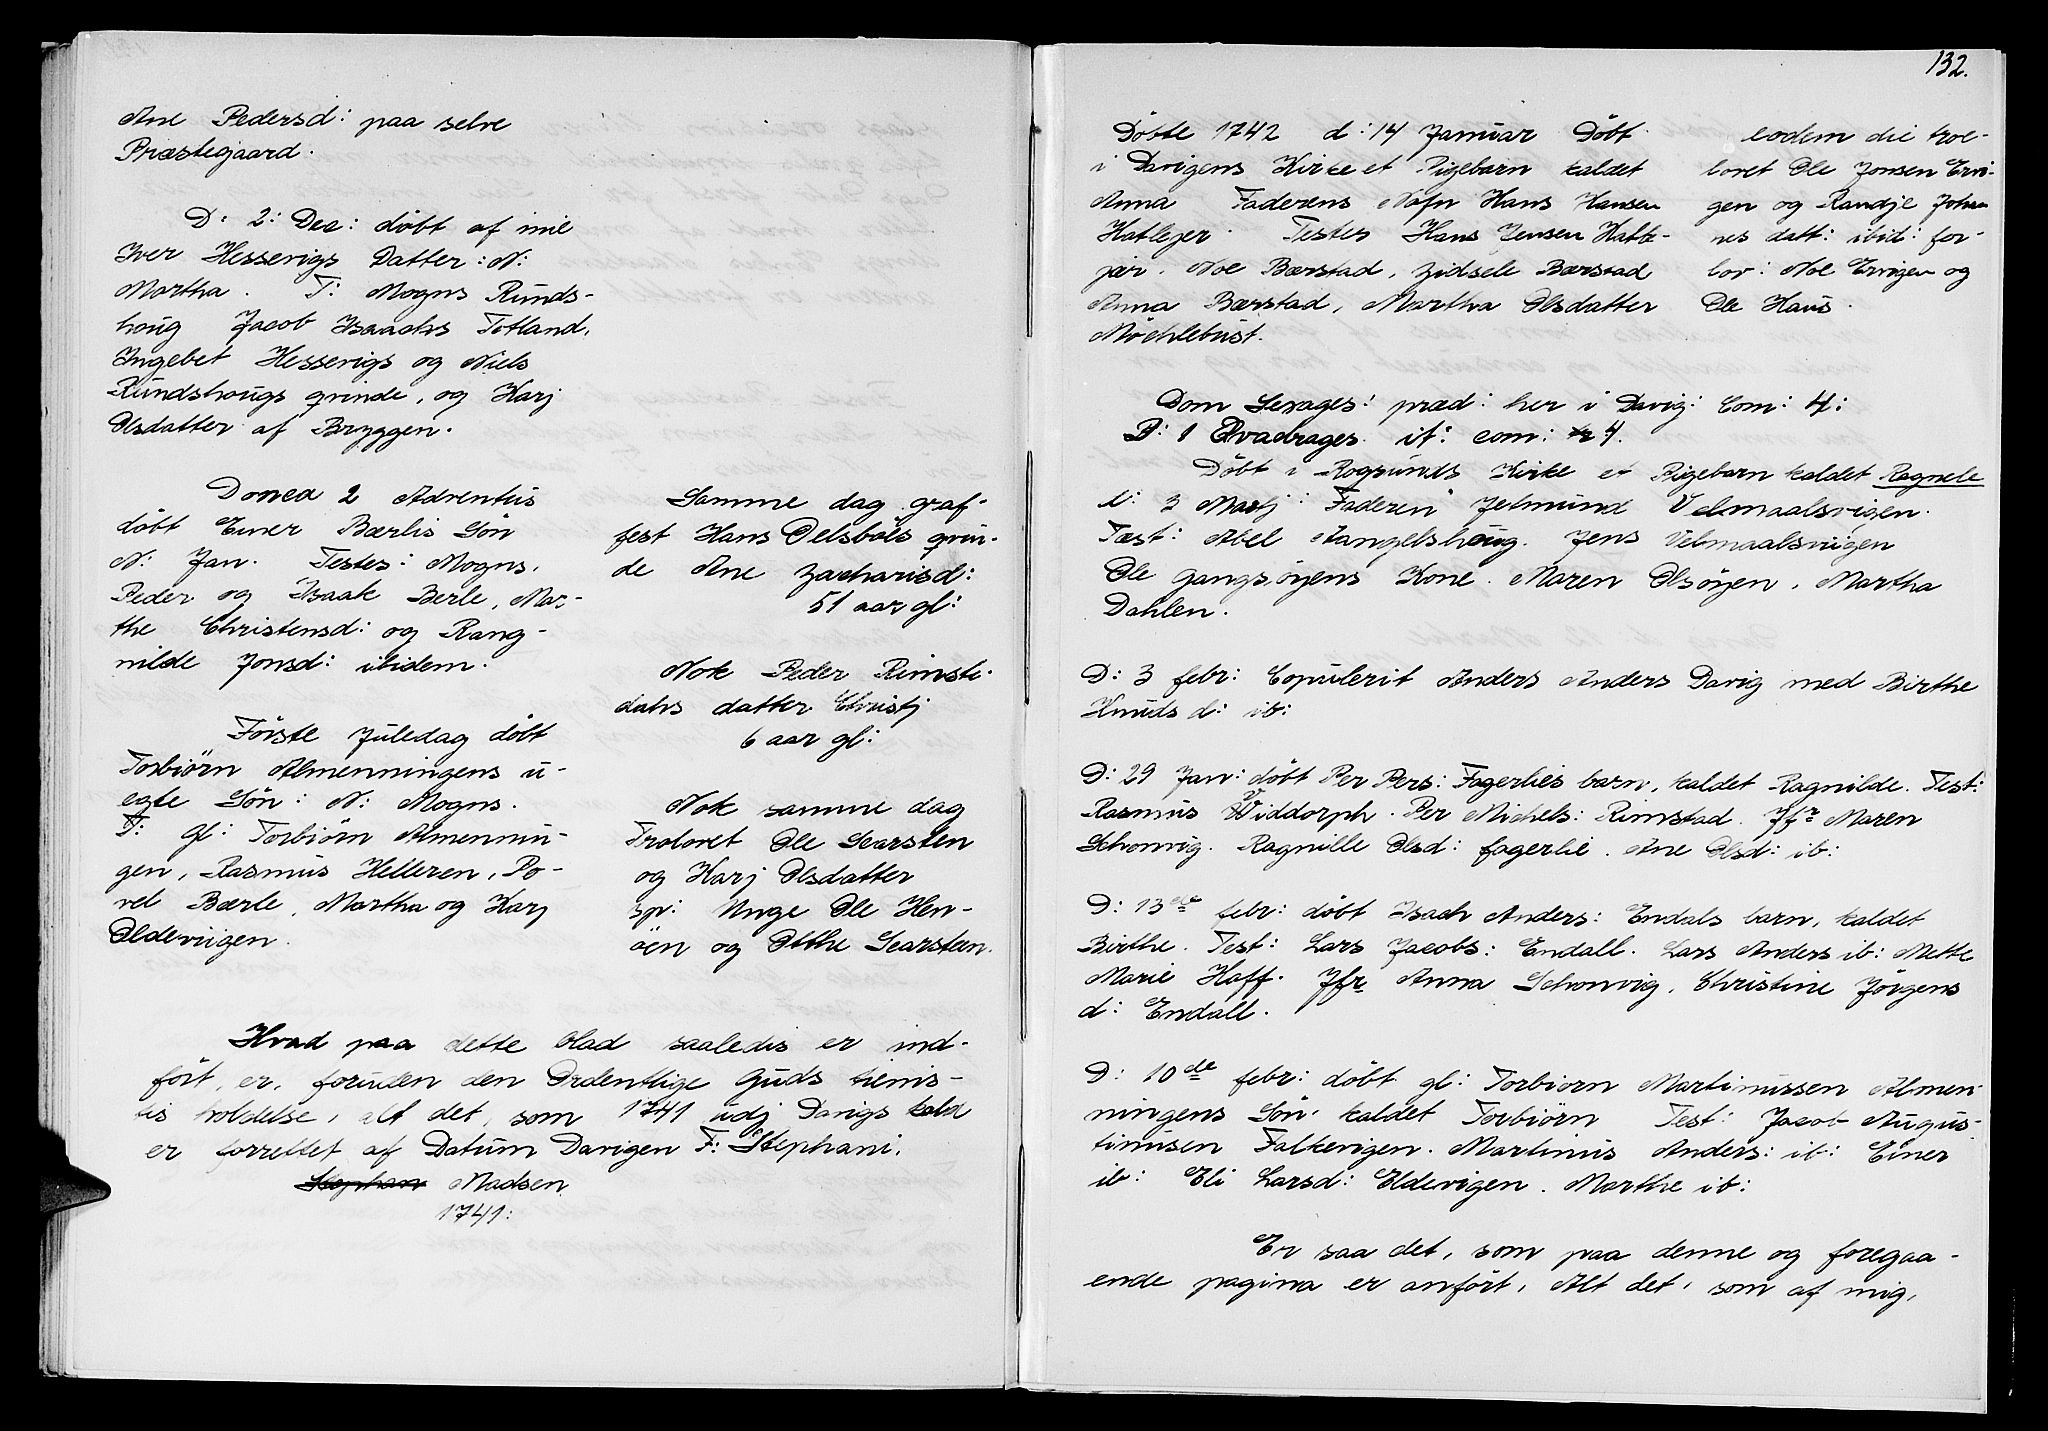 Ane Pedersd: paa selve
Præstegaard.
D: 2: Dec: döbt af mie
Iver Hesserigs Datter: N:
Martha. T: Mogns Runds-
houg Jacob Isaachs Totland,
Ingebet Hesserigs og Niels
Rundshougs qvinde, og Karj
Olsdatter af Bryggen.
Domca 2 Adventus
döbt Einer Bærlis Sön
N: Jan. Testes: Mogns,
Peder og Isaak Berle, Mar-
the Christensd: og Rang-
nilde Jonsd: ibidem.
Förste Juledag döbt
Torbiörn Almenningens u-
egte Sön: N: Mogns.
T: gl: Torbiörn Almennin-
gen, Rasmus Helleren, Po-
vel Bærle, Martha og Karj
Oldeviigen.
Samme dag graf-
fest Hans Delsböls qvin-
de Ane Zacharisd:
51 aar gl:
Nok Peder Rimsti-
dahs datter Christj
6 aar gl:
Nok samme dag
Trolovet Ole Searsten
og Karj Olsdatter
sp: Unge Ole Hen-
öen og Otthe Searsten.
Hvad paa dette blad saaledis er ind-
fört, er, foruden den Ordentlige Guds tienis-
tis holdelse, alt det, som 1741 udj Davigs kald
er forrettet af Datum Davigen F: Stephani.
Stephan Madsen
1741:
132.
Döbte 1742 d: 14 Januar Döbt
i Davigens Kirke et Pigebarn kaldet
Anna Faderens Nafn Hans Hansen
Hatlejer. Testes Hans Jensen Hatle-
jær. Noe Barstad, Zidsele Barstad
Anna Barstad, Martha Olsdatter
Möchlebust.
eodem die troe-
lovet Ole Jonsen Ervi-
gen og Randje Johan
nes datt: ibid: for-
lov: Noe Ervigen og
Ole Haus.
Dom Sexages: præd: her i Davig: Com: 4:
D: 1 Qvadrages. it: com: 4.
Döbt i Rogsunds Kirke et Pigebarn kaldet Ragnele
d: 3 Martj Faderen Jelmund Velmaalsvigen.
Test: Abel Aangelshoug. Jens Velmaalsviigen
Ole Gangsöyens Kone. Maren Olsöyen, Martha
Dahlen.
D: 3 febr: Copulerit Anders Anders Davig med Birthe
Knuds d: ib:
D: 29 Jan: döbt Per Pers: Fagerlies barn, kaldet Ragnilde. Test:
Rasmus Widdorph. Per Michels: Rimstad. Jfr Maren
Schonvig. Ragnille Olsd: fagerlie. Ane Olsd: ib:
D: 13de febr: döbt Isach Anders: Endals barn, kaldet
Birthe. Test: Lars Jacobs: Endall. Lars Anders ib: Mette
Marie Hoff. Jfr Anna Schonvig, Christine Jörgens
d: Endall.
D: 10de febr: döbt gl: Torbiorn Martinussen Almen
ningens Sön kaldet Torbiörn Test: Jacob Augus-
tinusen Falkevigen. Martinus Anders: ib: Einer
ib: Eli Larsd: Eldevigen. Marthe ib:
Er saa det, som paa denne og foregaa-
ende pagina er anfört, Alt det, som af mig,